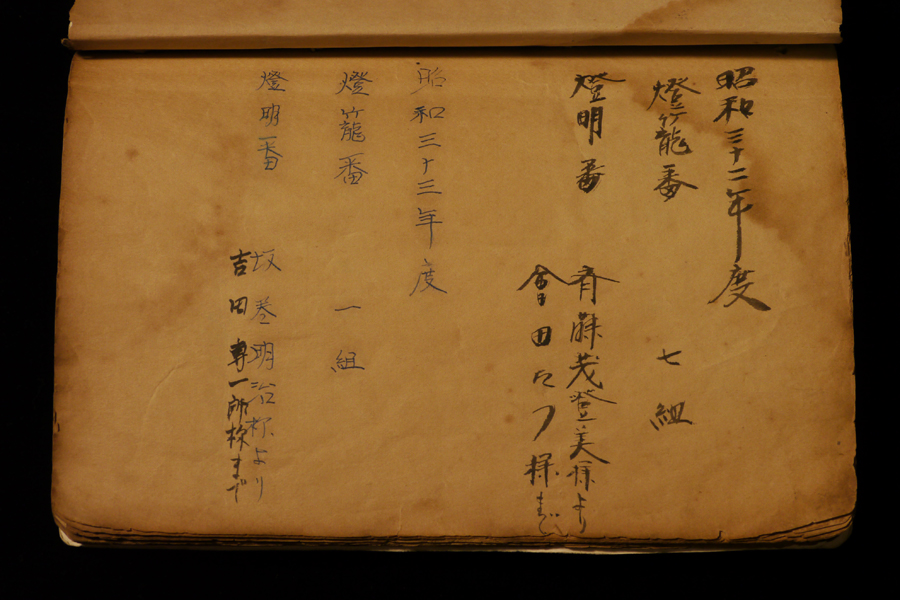 昭和三十二年度
燈籠番　七組
燈明番　斉藤茂登美様より
會田ロク様まで
昭和三十三年度
燈籠番　一組
燈明番　坂巻明治様より
吉田専一郎様まで